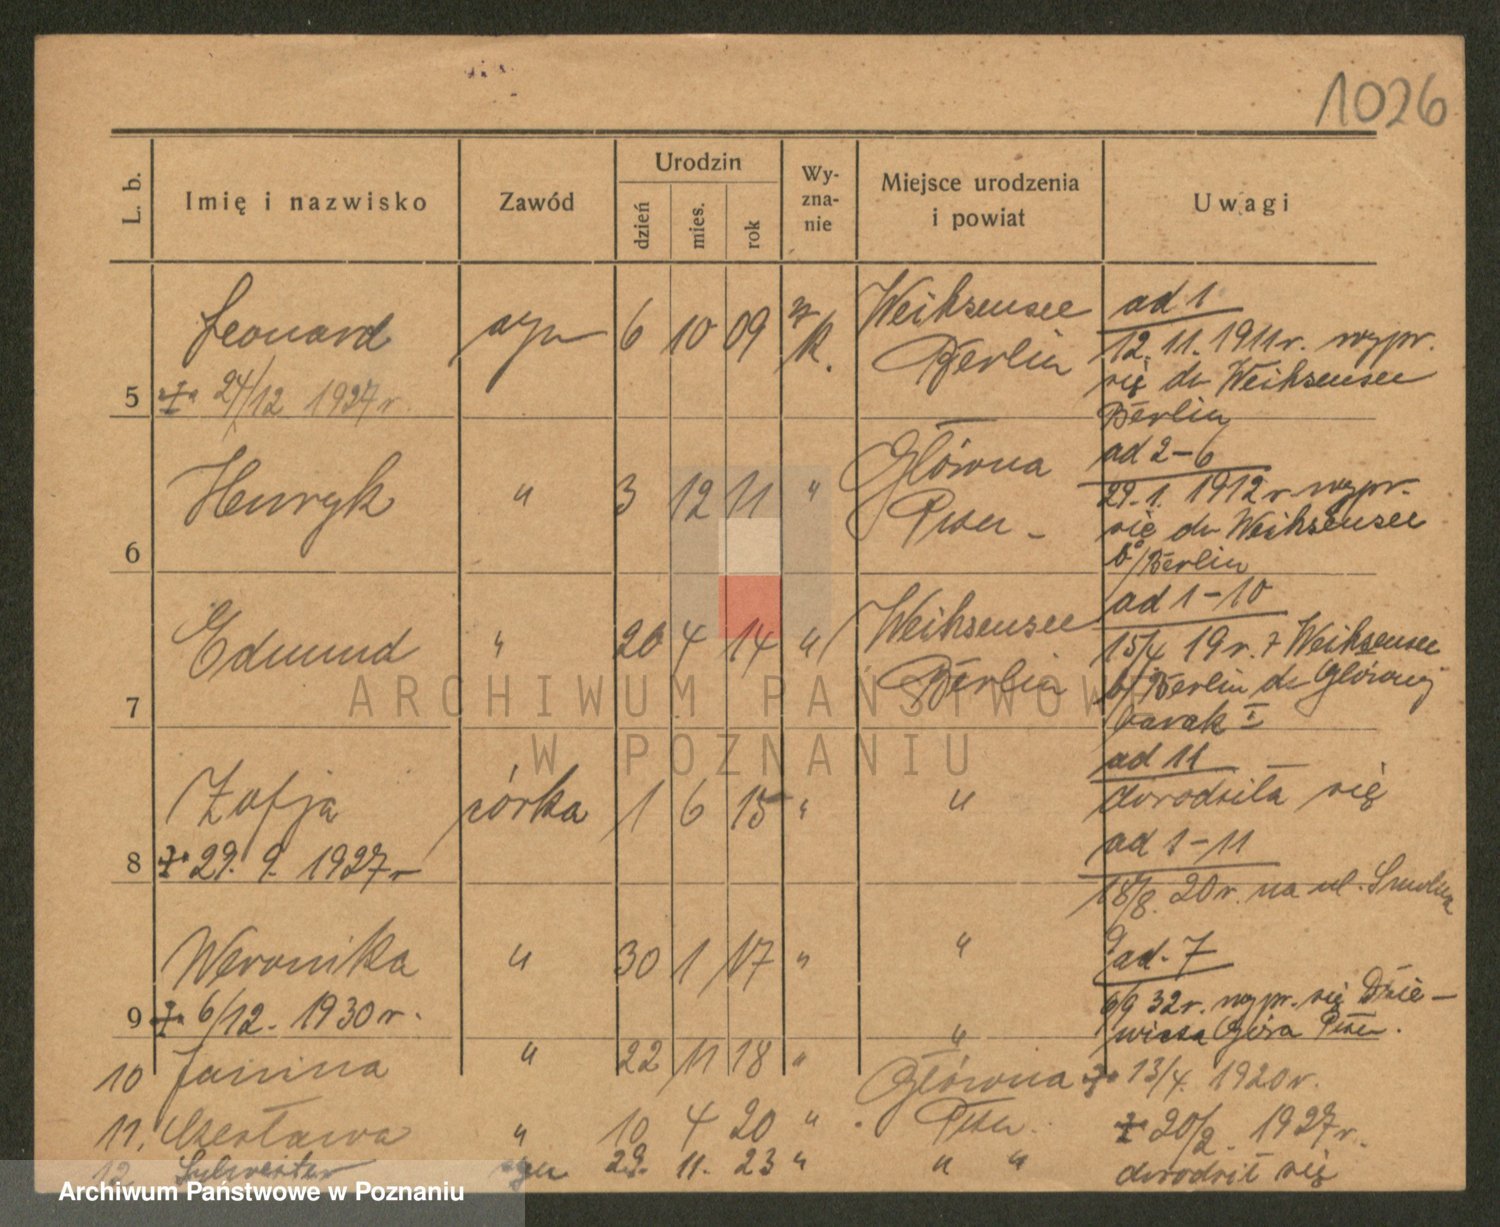 1026
L. b.
Imię i nazwisko
Zawód
Urodzin
dzień
mies.
rok
Wy-
zna-
nie
Miejsce urodzenia
i powiat
Uwagi
5 Leonard syn 6 10 09 rz k. Weihsensee
Berlin
24/12 1927 r.
ad 1
12. 11. 1911 r. wypr.
się do Weihsensee
Berlin
6 Henryk " 3 12 11 " Główna
Pozn -
ad 2-6
29. 1. 1912 r. wypr.
się do Weihsensee
b/Berlin
7 Edmund " 20 4 14 " Weihsensee
Berlin
ad 1-10
15/4 19 r. z Weihsensee
b/Berlin do Głównej
barak I
8 Zofja córka 1 6 15 " "
29. 9. 1927 r
ad 11
dorodziła się
ad 1-11
18/8. 20 r. na ul. Smolna
9 Weronika " 30 1 17 " "
6/12. 1930 r.
ad. 7
9/9 32 r. wypr. się Dzie-
wicza Góra Pozn.
10 Janina " 22 11 18 " " Główna 13/4. 1920 r.
11. Czesława " 10 4 20 " Pozn. 20/2. 1927 r.
12 Sylwester syn 29. 11. 23 " " " dorodził się
ARCHIWUM PAŃSTWOWE
W POZNANIU
Archiwum Państwowe w Poznaniu